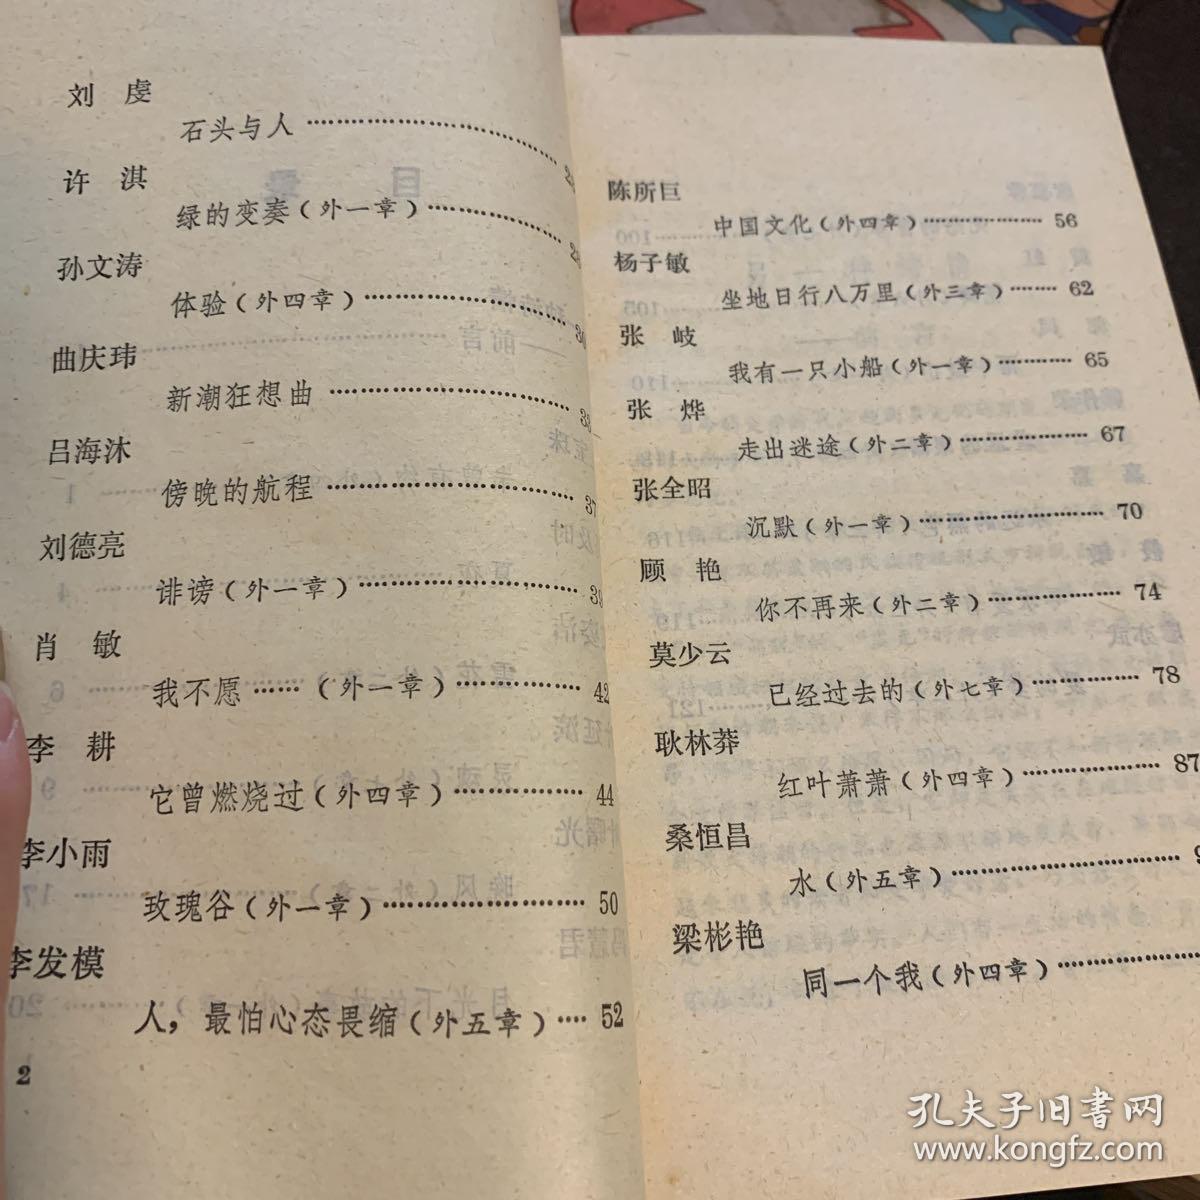 刘　虔
石头与人 ……………………
许　淇
绿的变奏(外一章) ……………
孙文涛
体验(外四章) ………………… 30
曲庆玮
新潮狂想曲 ……………………
吕海沐
傍晚的航程 …………………… 37
刘德亮
诽谤(外一章) ………………… 39
肖　敏
我不愿……(外一章) ………… 42
李　耕
它曾燃烧过(外四章) ………… 44
李小雨
玫瑰谷(外一章) ……………… 50
李发模
人，最怕心态畏缩(外五章) …… 52
2
陈所巨
中国文化(外四章) …………… 56
杨子敏
坐地日行八万里(外三章) …… 62
张　岐
我有一只小船(外一章) ……… 65
张　烨
走出迷途(外二章) …………… 67
张全昭
沉默(外一章) ………………… 70
顾　艳
你不再来(外二章) …………… 74
莫少云
已经过去的(外七章) ………… 78
耿林莽
红叶萧萧(外四章) …………… 87
桑恒昌
水(外五章) ……………………
梁彬艳
同一个我(外四章) ……………
孔夫子旧书网
www.kongfz.com